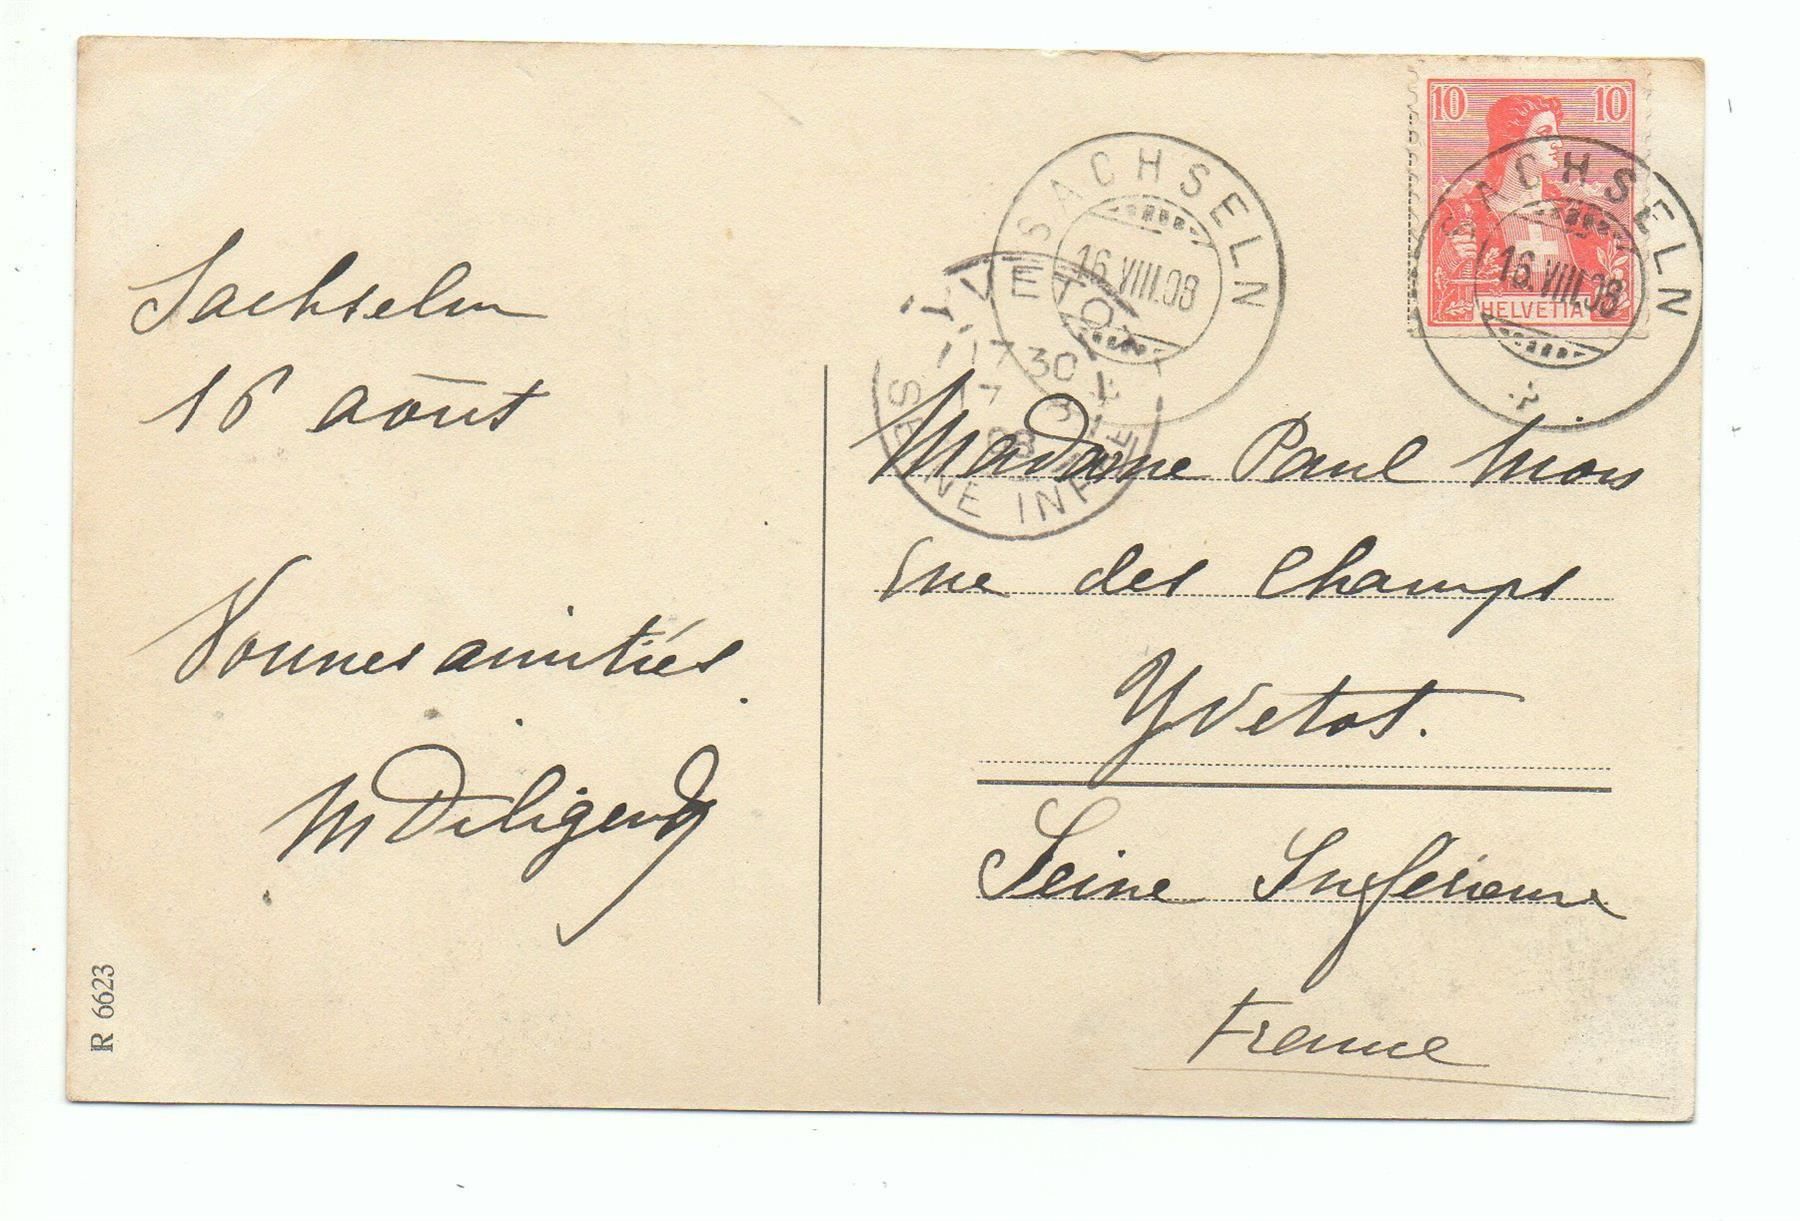 10 10
HELVETIA
SACHSELN
16.VIII.08
SACHSELN
16.VIII.08
YVETOT
17 30
17
8
08
SEINE INFRE
Sachseln
16 août
Bonnes amitiés.
M Diligence
Madame Paul
rue des Champs
Yvetot.
Seine Inférieure
France
R 6623